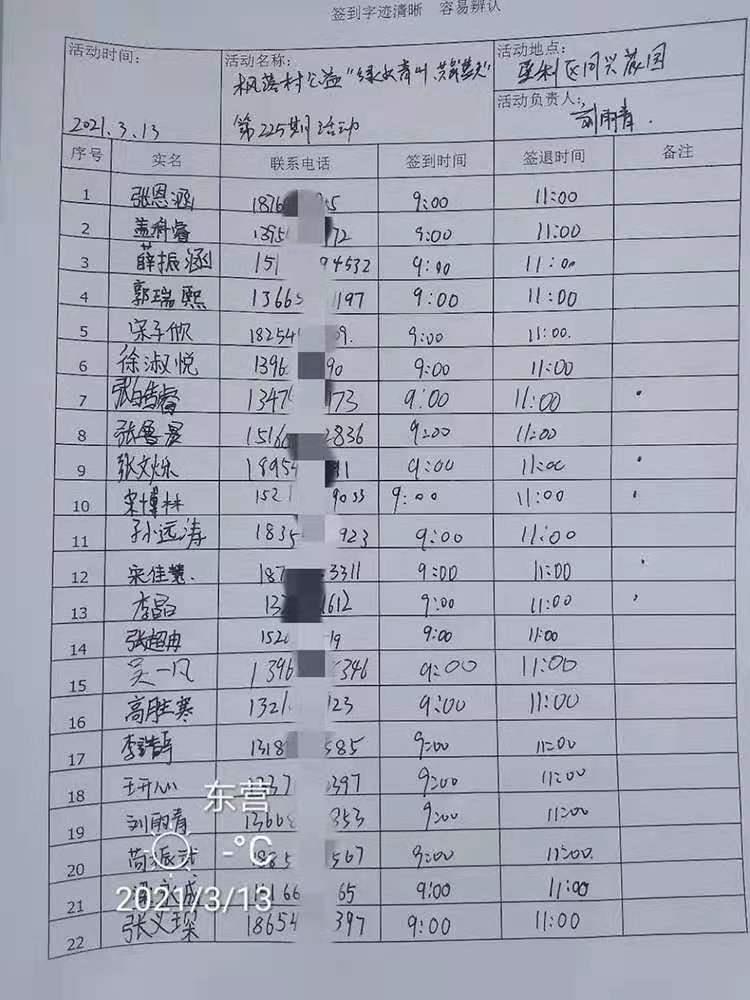 签到字迹清晰 容易辨认
活动时间：
2021.3.13
活动名称：
枫落村公益“绿水青山 共筑梦”
第225期活动
活动地点：
垦利区同兴花园
活动负责人：
刘丽青.
序号 实名 联系电话 签到时间 签退时间 备注
1 张恩涵 1876 5 9:00 11:00
2 盖科睿 1395 72 9:00 11:00
3 薛振涵 151 94532 9:00 11:00
4 郭瑞熙 13665 197 9:00 11:00
5 宋子欣 18254 9. 9:00 11:00.
6 徐淑悦 1396 90 9:00 11:00
7 1347 73 9:00 11:00
8 张鲁晨 15166 2836 9:00 11:00
9 张文烁 18954 1 9:00 11:00
10 宋博林 152 9033 9:00 11:00
11 孙远涛 1835 923 9:00 11:00
12 宋佳慧. 187 3311 9:00 11:00
13 李晶 132 1612 9:00 11:00
14 张超冉 152 19 9:00 11:00
15 吴一凡 1396 346 9:00 11:00
16 高胜寒 1321 123 9:00 11:00
17 1318 585 9:00 11:00
18 王开心 1337 397 9:00 11:00
19 刘丽青 13668 353 9:00 11:00
20 1885 567 9:00 11:00.
21 166 65 9:00 11:00
22 张义琛 18654 397 9:00 11:00
东营
-°C
2021/3/13